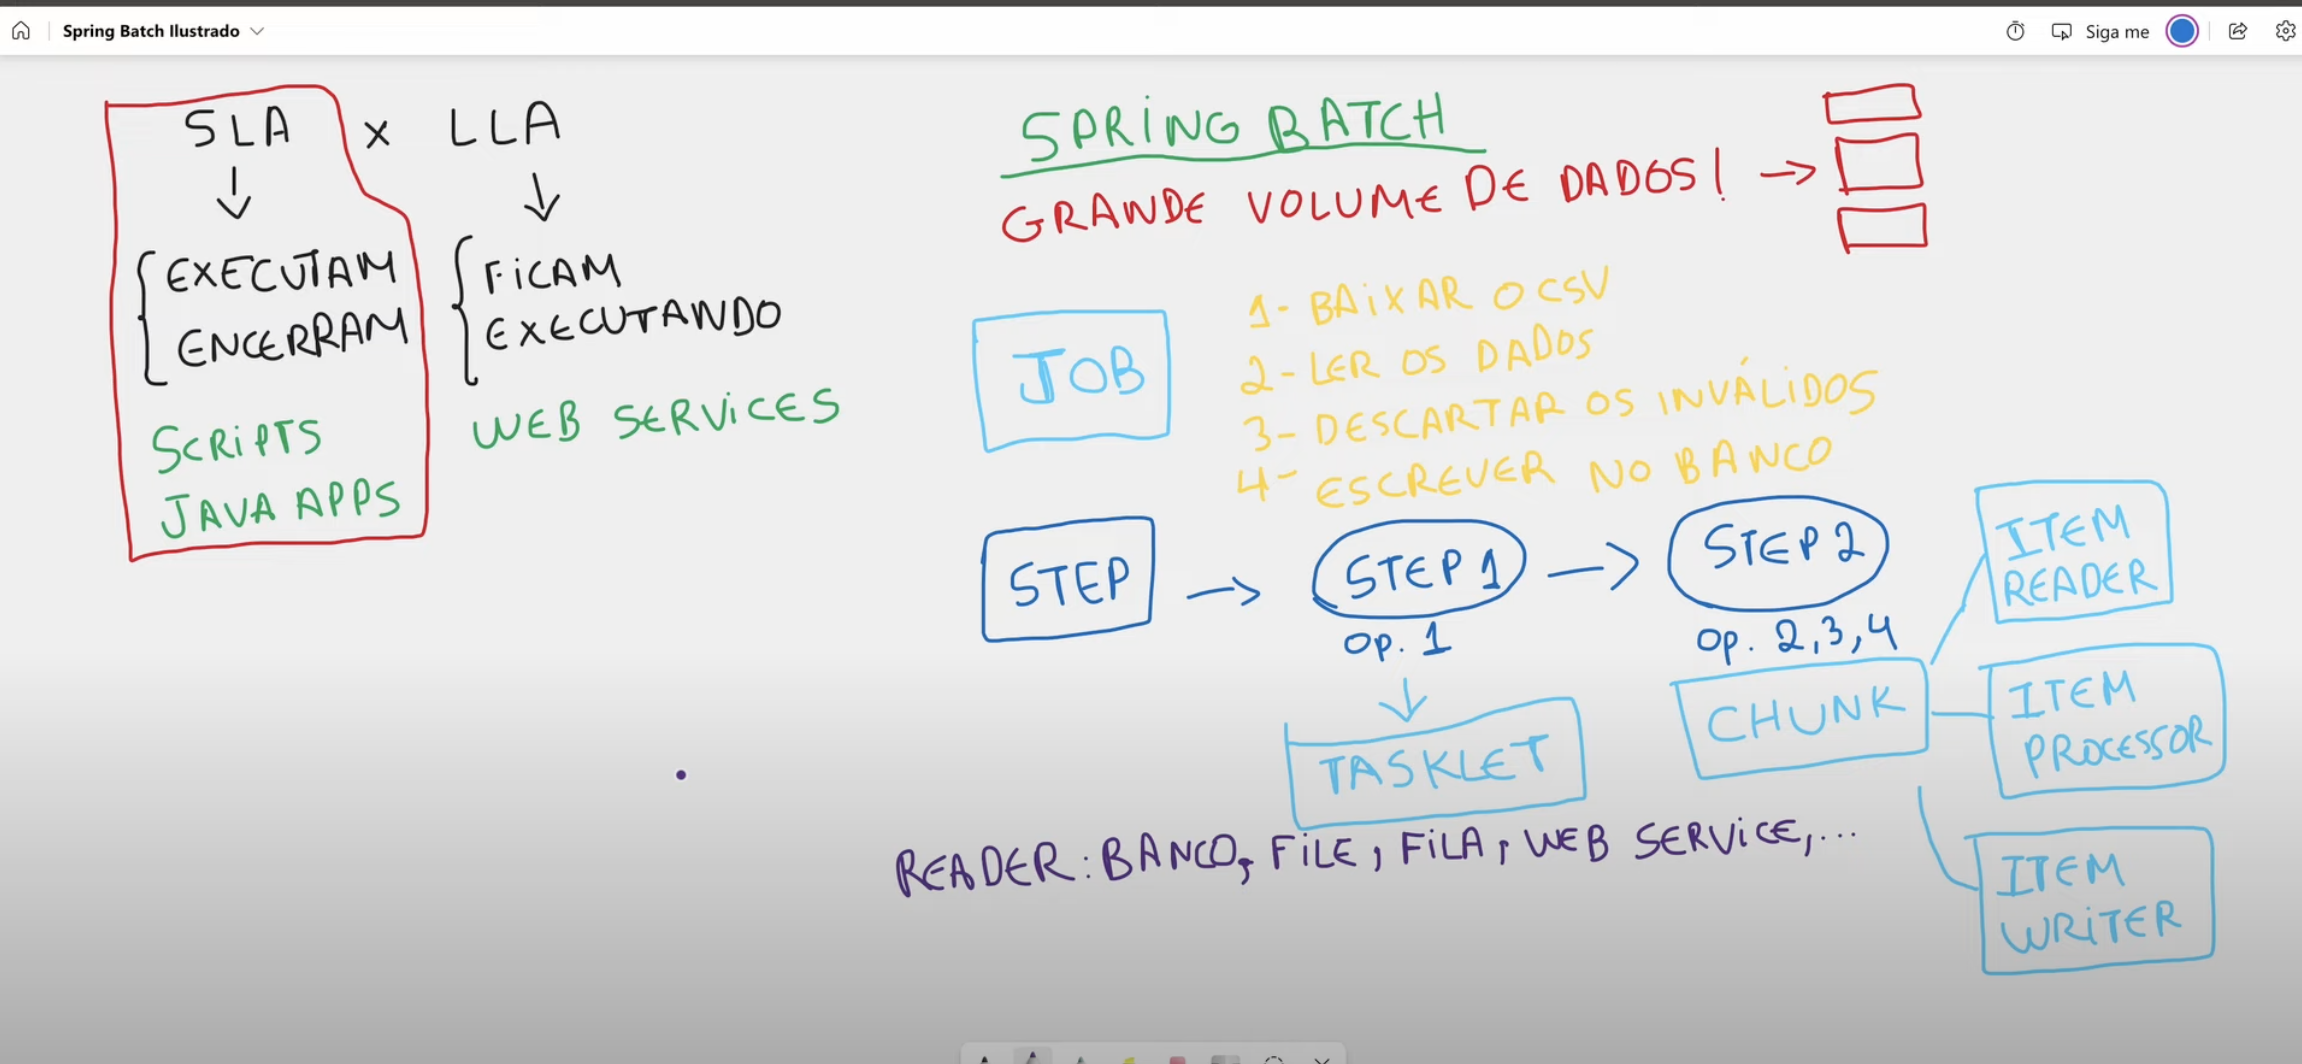 Spring Batch Ilustrado
Siga me
SLA x LLA
EXECUTAM
ENCERRAM
FICAM
EXECUTANDO
SCRIPTS
JAVA APPS
WEB SERVICES
SPRING BATCH
GRANDE VOLUME DE DADOS!
JOB
1- BAIXAR O CSV
2- LER OS DADOS
3- DESCARTAR OS INVÁLIDOS
4- ESCREVER NO BANCO
STEP
STEP 1
STEP 2
OP. 1
OP. 2,3,4
TASKLET
CHUNK
ITEM
READER
ITEM
PROCESSOR
ITEM
WRITER
READER: BANCO, FILE, FILA, WEB SERVICE,...